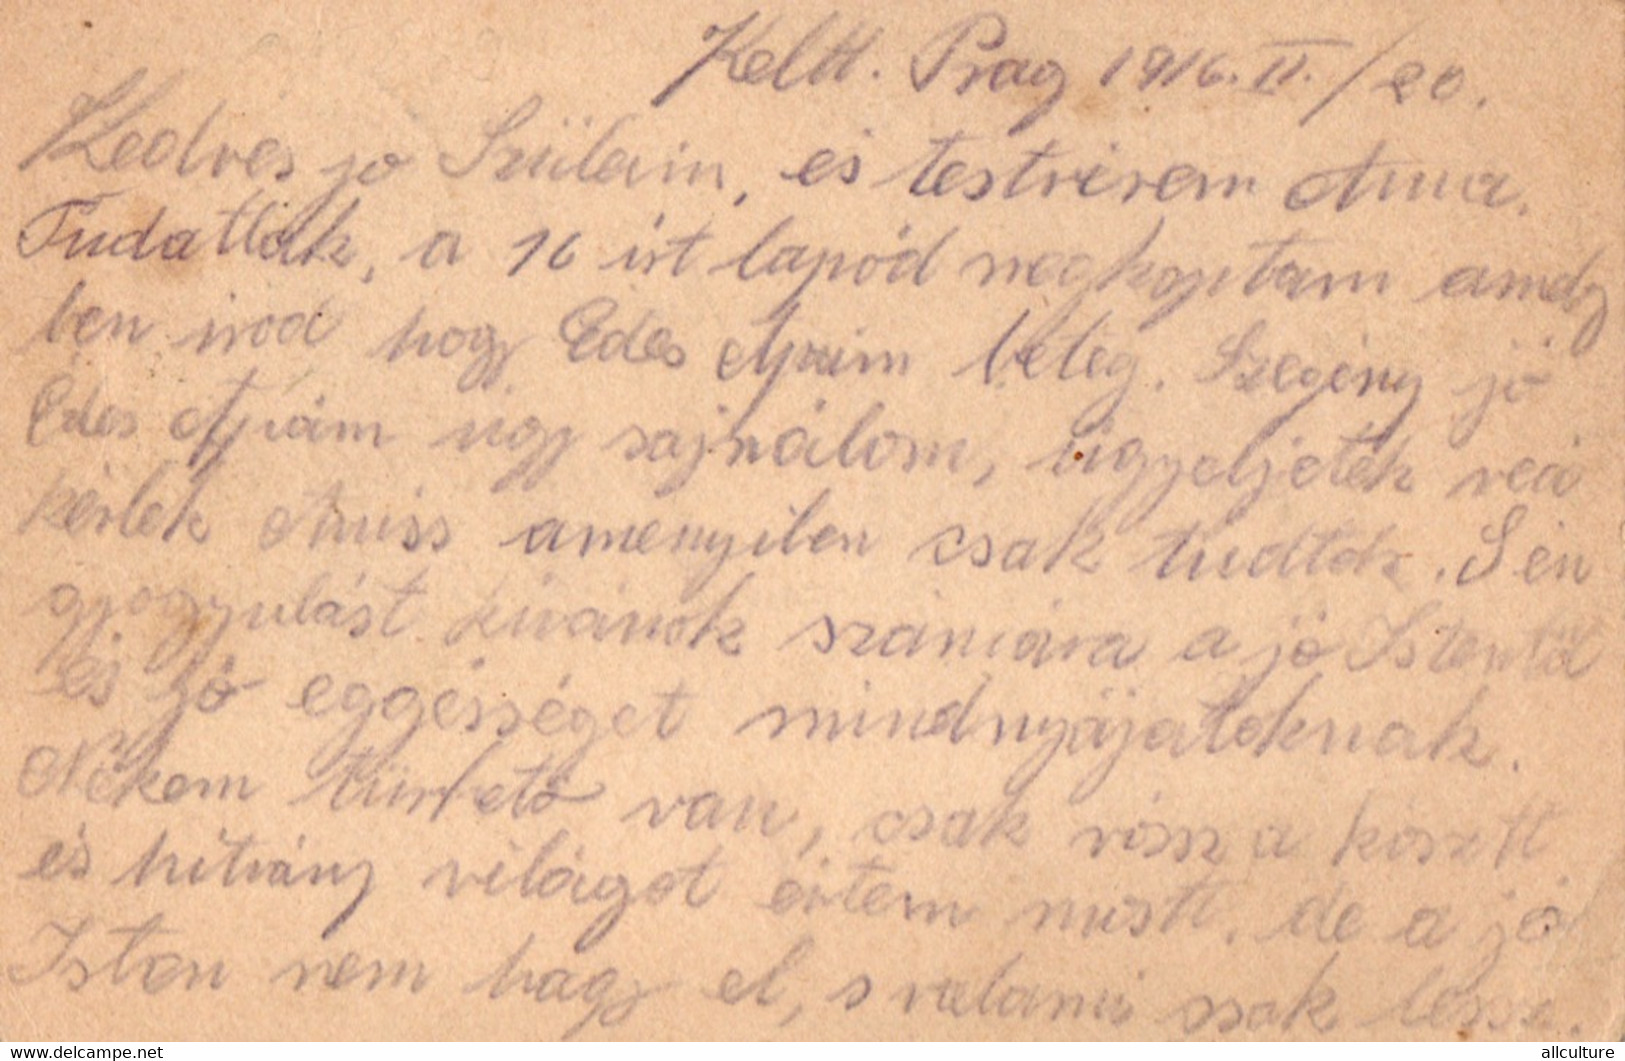 Keltt. Prag 1916. II./20.
Kedves jo Szüleim, és testvérem Anna.
Tudatlak, a 16 írt lapód megkaptam amely
ben irod hogy Edes Apám beteg. Szegény jó
Édes Apám úgy sajnálom, ügyeljetek reá
kérlek Annus amenyiben csak tudtok. S én
gyogyulást kivánok számára a jó Istentöl
és jó eggésséget mindnyájatoknak.
Nékem türhető van, csak róssz a kosztt
és hitvány világot értem mostt, de a jó
Isten nem hagy el, s valami csak lessz.
www.delcampe.net
allculture